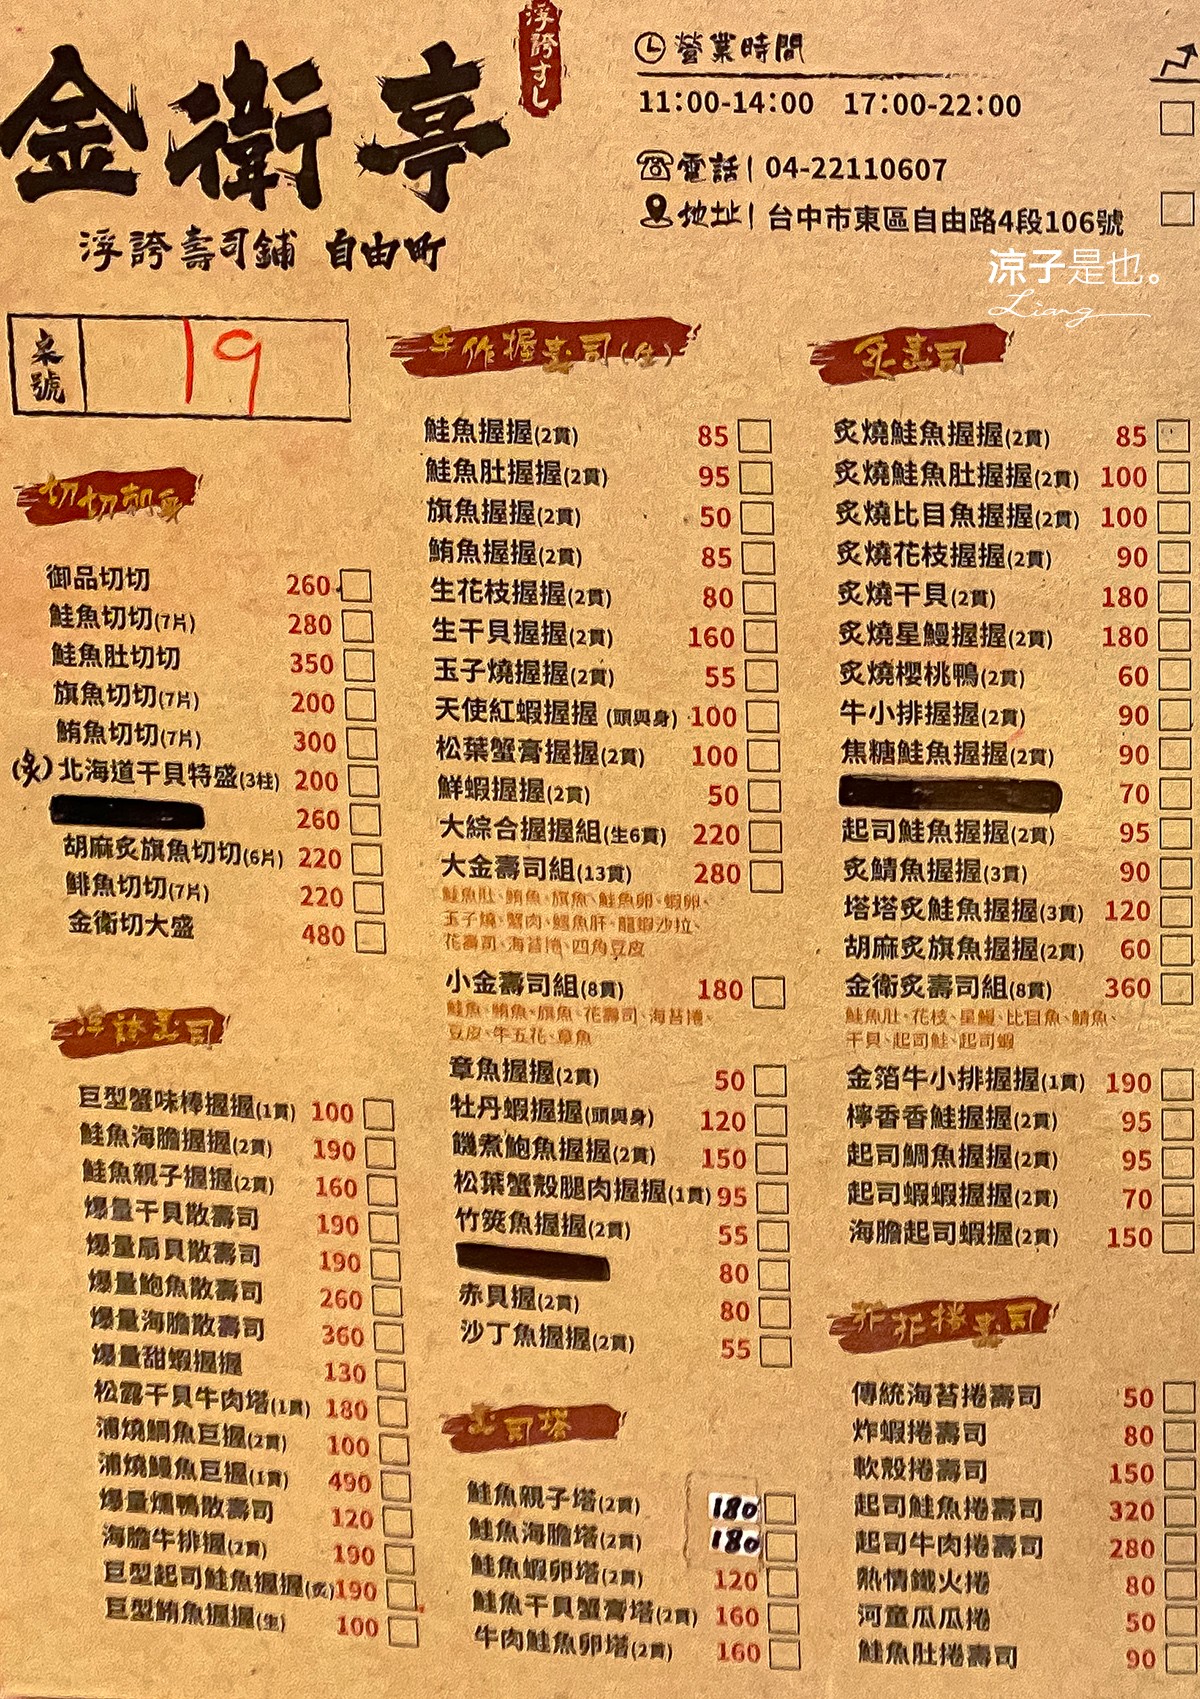 金衛亭
浮誇すし
浮誇壽司鋪 自由町
營業時間
11:00-14:00 17:00-22:00
電話| 04-22110607
地址| 台中市東區自由路4段106號
涼子是也。
Liang
桌號 19
切切刺身
御品切切 260
鮭魚切切(7片) 280
鮭魚肚切切 350
旗魚切切(7片) 200
鮪魚切切(7片) 300
(炙)北海道干貝特盛(3柱) 200
260
胡麻炙旗魚切切(6片) 220
鯡魚切切(7片) 220
金衛切大盛 480
浮誇壽司
巨型蟹味棒握握(1貫) 100
鮭魚海膽握握(2貫) 190
鮭魚親子握握(2貫) 160
爆量干貝散壽司 190
爆量扇貝散壽司 190
爆量鮑魚散壽司 260
爆量海膽散壽司 360
爆量甜蝦握握 130
松露干貝牛肉塔(1貫) 180
浦燒鯛魚巨握(2貫) 100
浦燒鰻魚巨握(1貫) 490
爆量燻鴨散壽司 120
海膽牛排握(2貫) 190
巨型起司鮭魚握握(炙) 190
巨型鮪魚握握(生) 100
手作握壽司(生)
鮭魚握握(2貫) 85
鮭魚肚握握(2貫) 95
旗魚握握(2貫) 50
鮪魚握握(2貫) 85
生花枝握握(2貫) 80
生干貝握握(2貫) 160
玉子燒握握(2貫) 55
天使紅蝦握握 (頭與身) 100
松葉蟹膏握握(2貫) 100
鮮蝦握握(2貫) 50
大綜合握握組(生6貫) 220
大金壽司組(13貫) 280
鮭魚肚、鮪魚、旗魚、鮭魚卵、蝦卵、
玉子燒、蟹肉、鱈魚肝、龍蝦沙拉、
花壽司、海苔捲、四角豆皮
小金壽司組(8貫) 180
鮭魚、鮪魚、旗魚、花壽司、海苔捲、
豆皮、牛五花、章魚
章魚握握(2貫) 50
牡丹蝦握握(頭與身) 120
磯煮鮑魚握握(2貫) 150
松葉蟹殼腿肉握握(1貫) 95
竹筴魚握握(2貫) 55
80
赤貝握(2貫) 80
沙丁魚握握(2貫) 55
壽司塔
鮭魚親子塔(2貫) 180
鮭魚海膽塔(2貫) 180
鮭魚蝦卵塔(2貫) 120
鮭魚干貝蟹膏塔(2貫) 160
牛肉鮭魚卵塔(2貫) 160
炙壽司
炙燒鮭魚握握(2貫) 85
炙燒鮭魚肚握握(2貫) 100
炙燒比目魚握握(2貫) 100
炙燒花枝握握(2貫) 90
炙燒干貝(2貫) 180
炙燒星鰻握握(2貫) 180
炙燒櫻桃鴨(2貫) 60
牛小排握握(2貫) 90
焦糖鮭魚握握(2貫) 90
70
起司鮭魚握握(2貫) 95
炙鯖魚握握(3貫) 90
塔塔炙鮭魚握握(3貫) 120
胡麻炙旗魚握握(2貫) 60
金衛炙壽司組(8貫) 360
鮭魚肚、花枝、星鰻、比目魚、鯖魚、
干貝、起司鮭、起司蝦
金箔牛小排握握(1貫) 190
檸香香鮭握握(2貫) 95
起司鯛魚握握(2貫) 95
起司蝦蝦握握(2貫) 70
海膽起司蝦握(2貫) 150
捲壽司
傳統海苔捲壽司 50
炸蝦捲壽司 80
軟殼捲壽司 150
起司鮭魚捲壽司 320
起司牛肉捲壽司 280
熱情鐵火捲 80
河童瓜瓜捲 50
鮭魚肚捲壽司 90